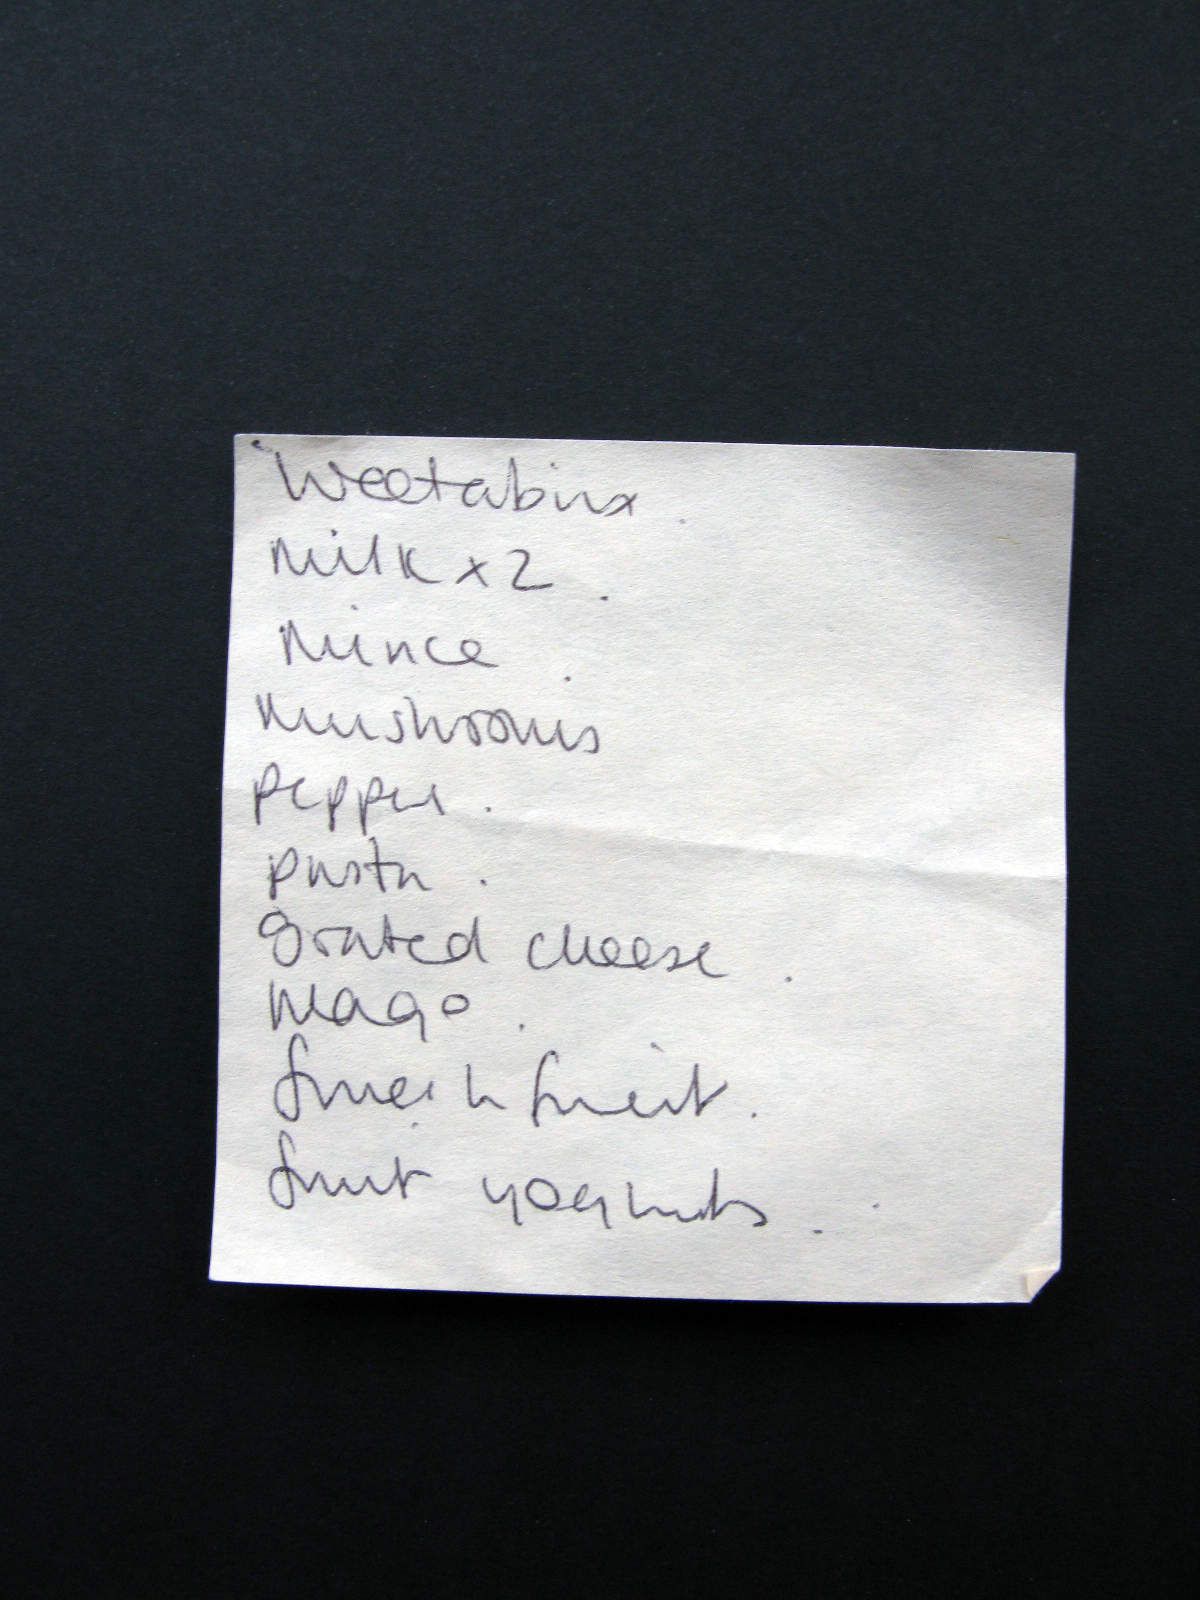 Weetabix
Milk x 2
Mince
Mushrooms
pepper
pasta
Grated cheese
Mago
fresh fruit
fruit yoghurts